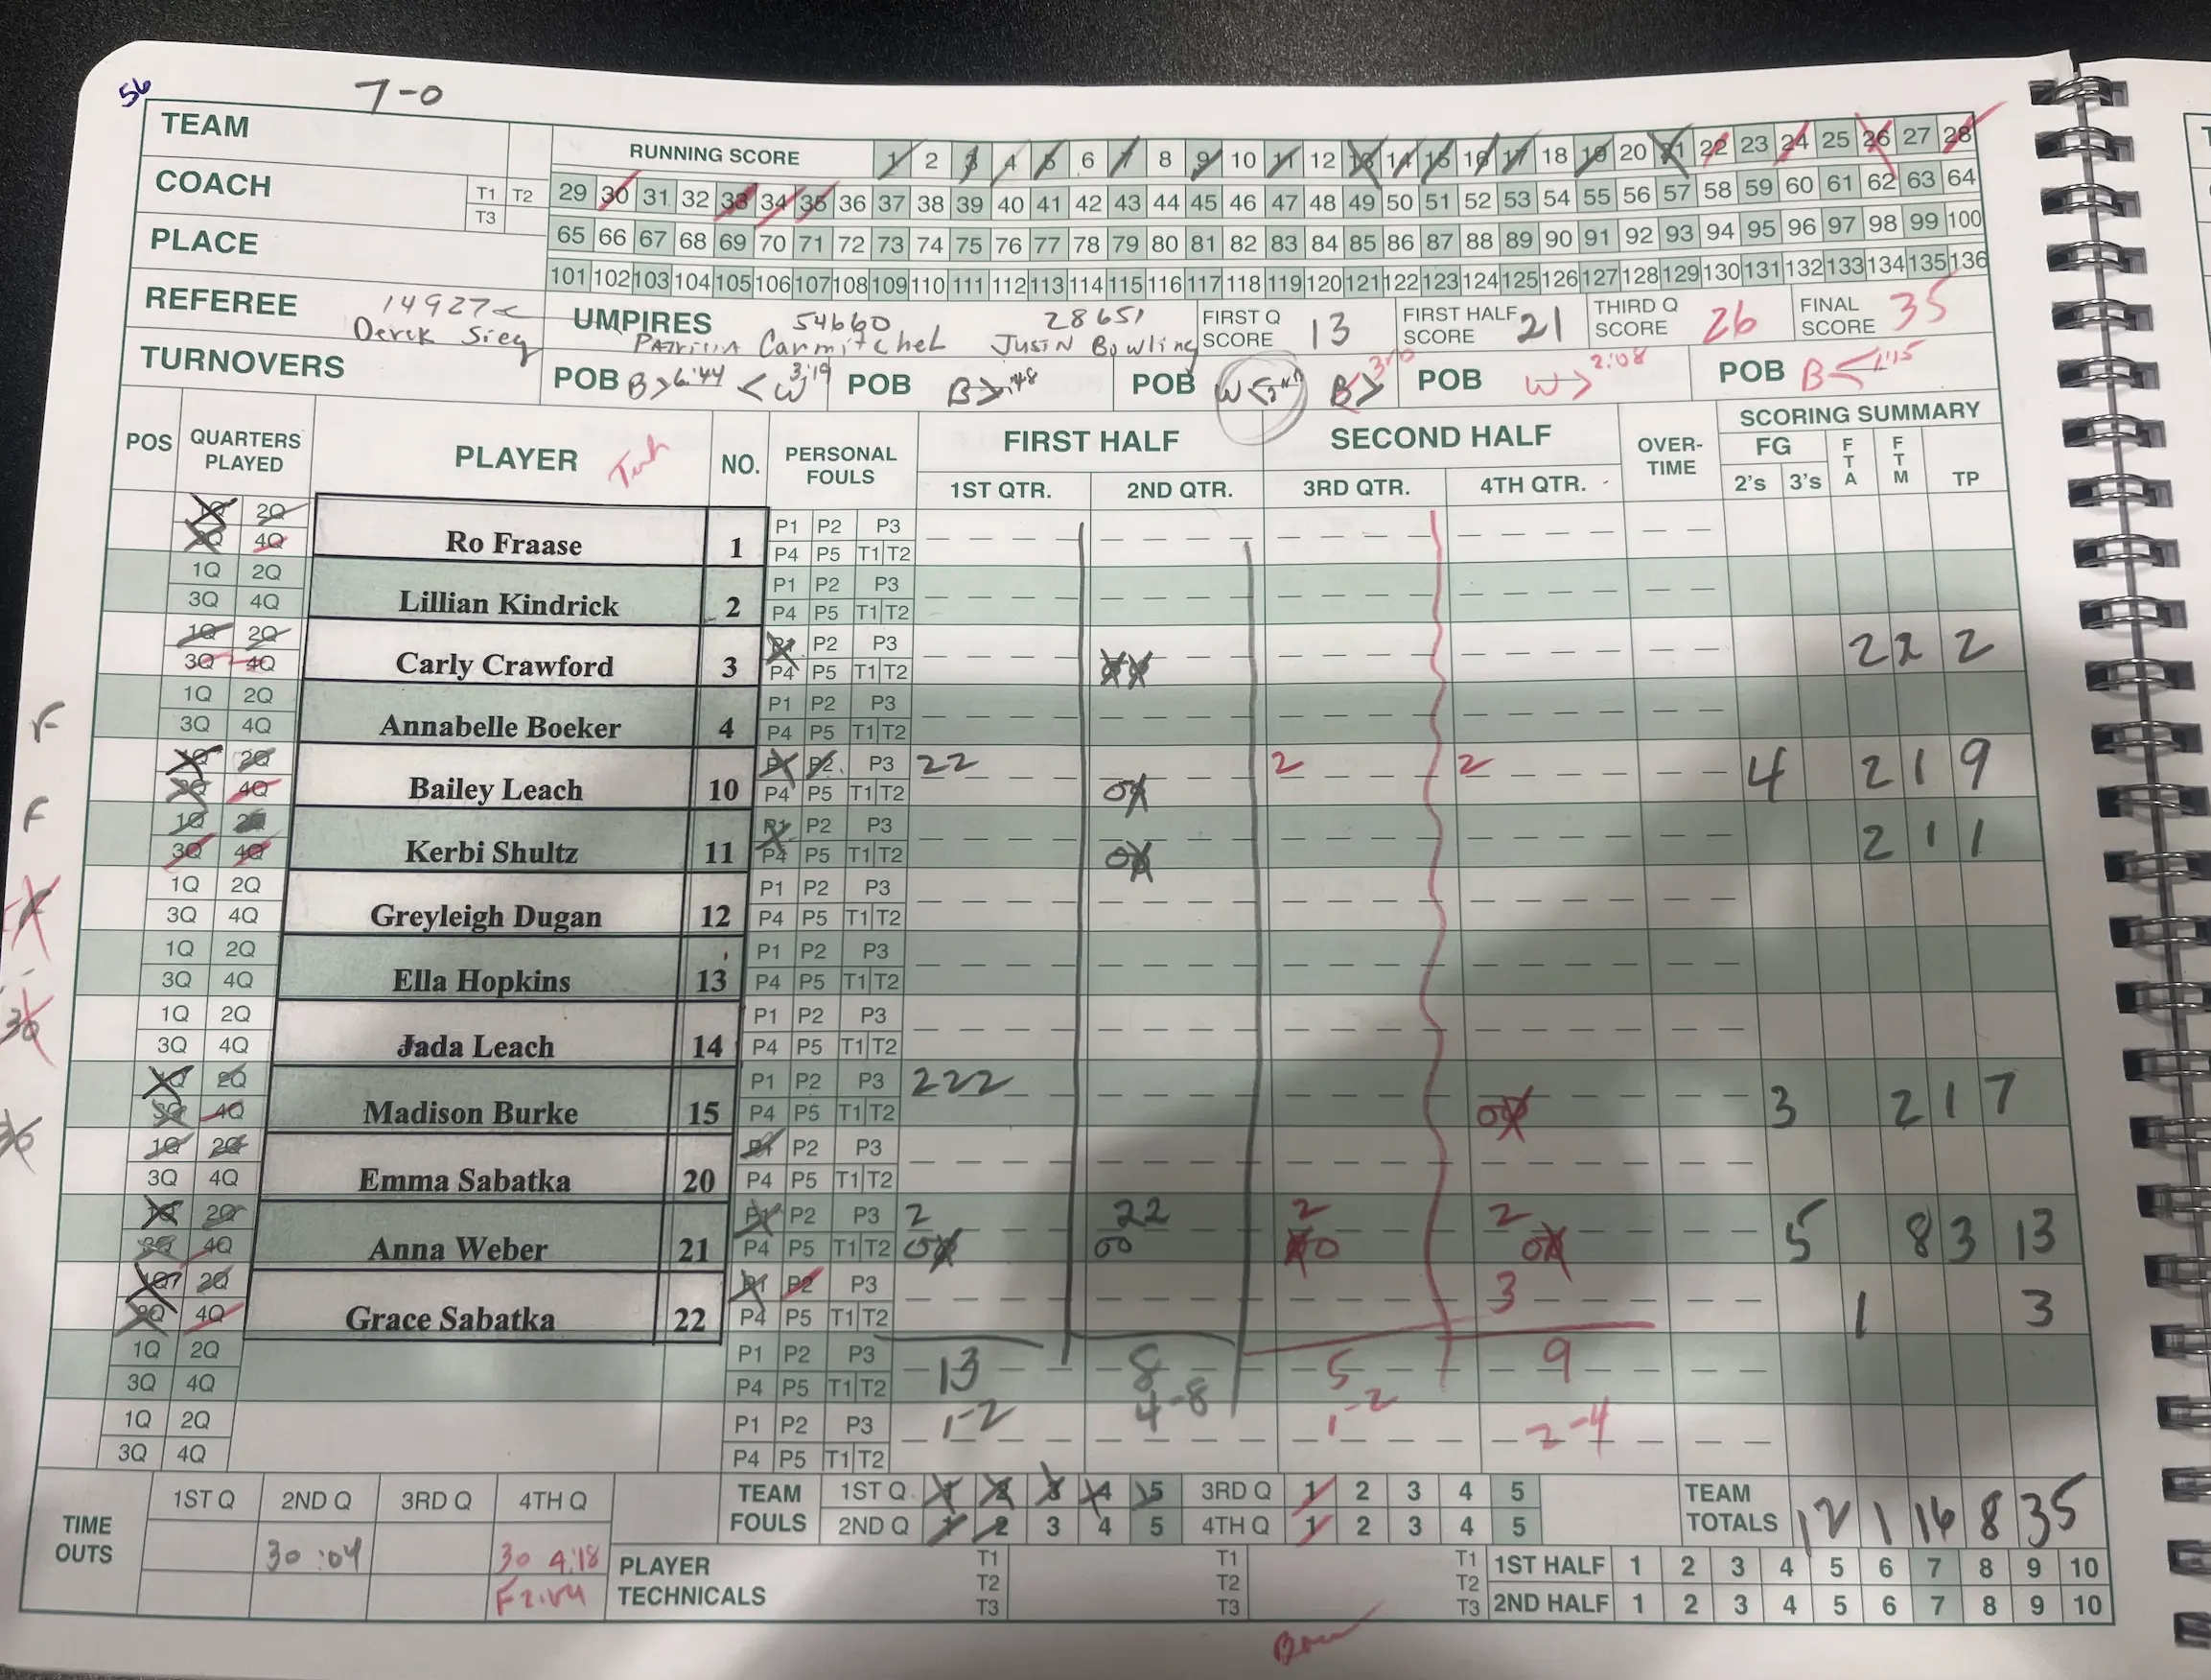 56
7-0
TEAM
COACH
T1 T2
T3
PLACE
RUNNING SCORE 1 2 3 4 5 6 7 8 9 10 11 12 13 14 15 16 17 18 19 20 21 22 23 24 25 26 27 28
29 30 31 32 33 34 35 36 37 38 39 40 41 42 43 44 45 46 47 48 49 50 51 52 53 54 55 56 57 58 59 60 61 62 63 64
65 66 67 68 69 70 71 72 73 74 75 76 77 78 79 80 81 82 83 84 85 86 87 88 89 90 91 92 93 94 95 96 97 98 99 100
101 102 103 104 105 106 107 108 109 110 111 112 113 114 115 116 117 118 119 120 121 122 123 124 125 126 127 128 129 130 131 132 133 134 135 136
REFEREE 14927
Derek Sieg
UMPIRES 54660 28651
Carmitchel Justin Bowling
FIRST Q SCORE 13
FIRST HALF SCORE 21
THIRD Q SCORE 26
FINAL SCORE 35
TURNOVERS
POB B> 6:44 <W 3:19 POB B> :48 POB W< B> POB W> 2:08 POB B< 1:15
POS QUARTERS PLAYED PLAYER NO. PERSONAL FOULS FIRST HALF SECOND HALF OVER-TIME SCORING SUMMARY
1ST QTR. 2ND QTR. 3RD QTR. 4TH QTR. FG 2's 3's FTA FTM TP
1Q 2Q P1 P2 P3
3Q 4Q Ro Fraase 1 P4 P5 T1 T2
1Q 2Q P1 P2 P3
3Q 4Q Lillian Kindrick 2 P4 P5 T1 T2
1Q 2Q P1 P2 P3
3Q 4Q Carly Crawford 3 P4 P5 T1 T2 2 2 2
1Q 2Q P1 P2 P3
F 3Q 4Q Annabelle Boeker 4 P4 P5 T1 T2
1Q 2Q P1 P2 P3 22 2 2
3Q 4Q Bailey Leach 10 P4 P5 T1 T2 4 2 1 9
F 1Q 2Q P1 P2 P3
3Q 4Q Kerbi Shultz 11 P4 P5 T1 T2 2 1 1
1Q 2Q P1 P2 P3
3Q 4Q Greyleigh Dugan 12 P4 P5 T1 T2
1Q 2Q P1 P2 P3
3Q 4Q Ella Hopkins 13 P4 P5 T1 T2
30 1Q 2Q P1 P2 P3
3Q 4Q Jada Leach 14 P4 P5 T1 T2
1Q 2Q P1 P2 P3 222
3Q 4Q Madison Burke 15 P4 P5 T1 T2 3 2 1 7
30 1Q 2Q P1 P2 P3
3Q 4Q Emma Sabatka 20 P4 P5 T1 T2
1Q 2Q P1 P2 P3 2 22 2 2
3Q 4Q Anna Weber 21 P4 P5 T1 T2 5 8 3 13
1Q 2Q P1 P2 P3
3Q 4Q Grace Sabatka 22 P4 P5 T1 T2 3 1 3
1Q 2Q P1 P2 P3
3Q 4Q P4 P5 T1 T2 13 8 5 9
1Q 2Q P1 P2 P3
3Q 4Q P4 P5 T1 T2 1-2 4-8 1-2 2-4
TIME OUTS
1ST Q 2ND Q 3RD Q 4TH Q
30 :04 30 4:18
TEAM FOULS
1ST Q 1 2 3 4 5 3RD Q 1 2 3 4 5
2ND Q 1 2 3 4 5 4TH Q 1 2 3 4 5
TEAM TOTALS 12 1 16 8 35
PLAYER TECHNICALS
T1 T1 T1
T2 T2 T2
T3 T3 T3
1ST HALF 1 2 3 4 5 6 7 8 9 10
2ND HALF 1 2 3 4 5 6 7 8 9 10